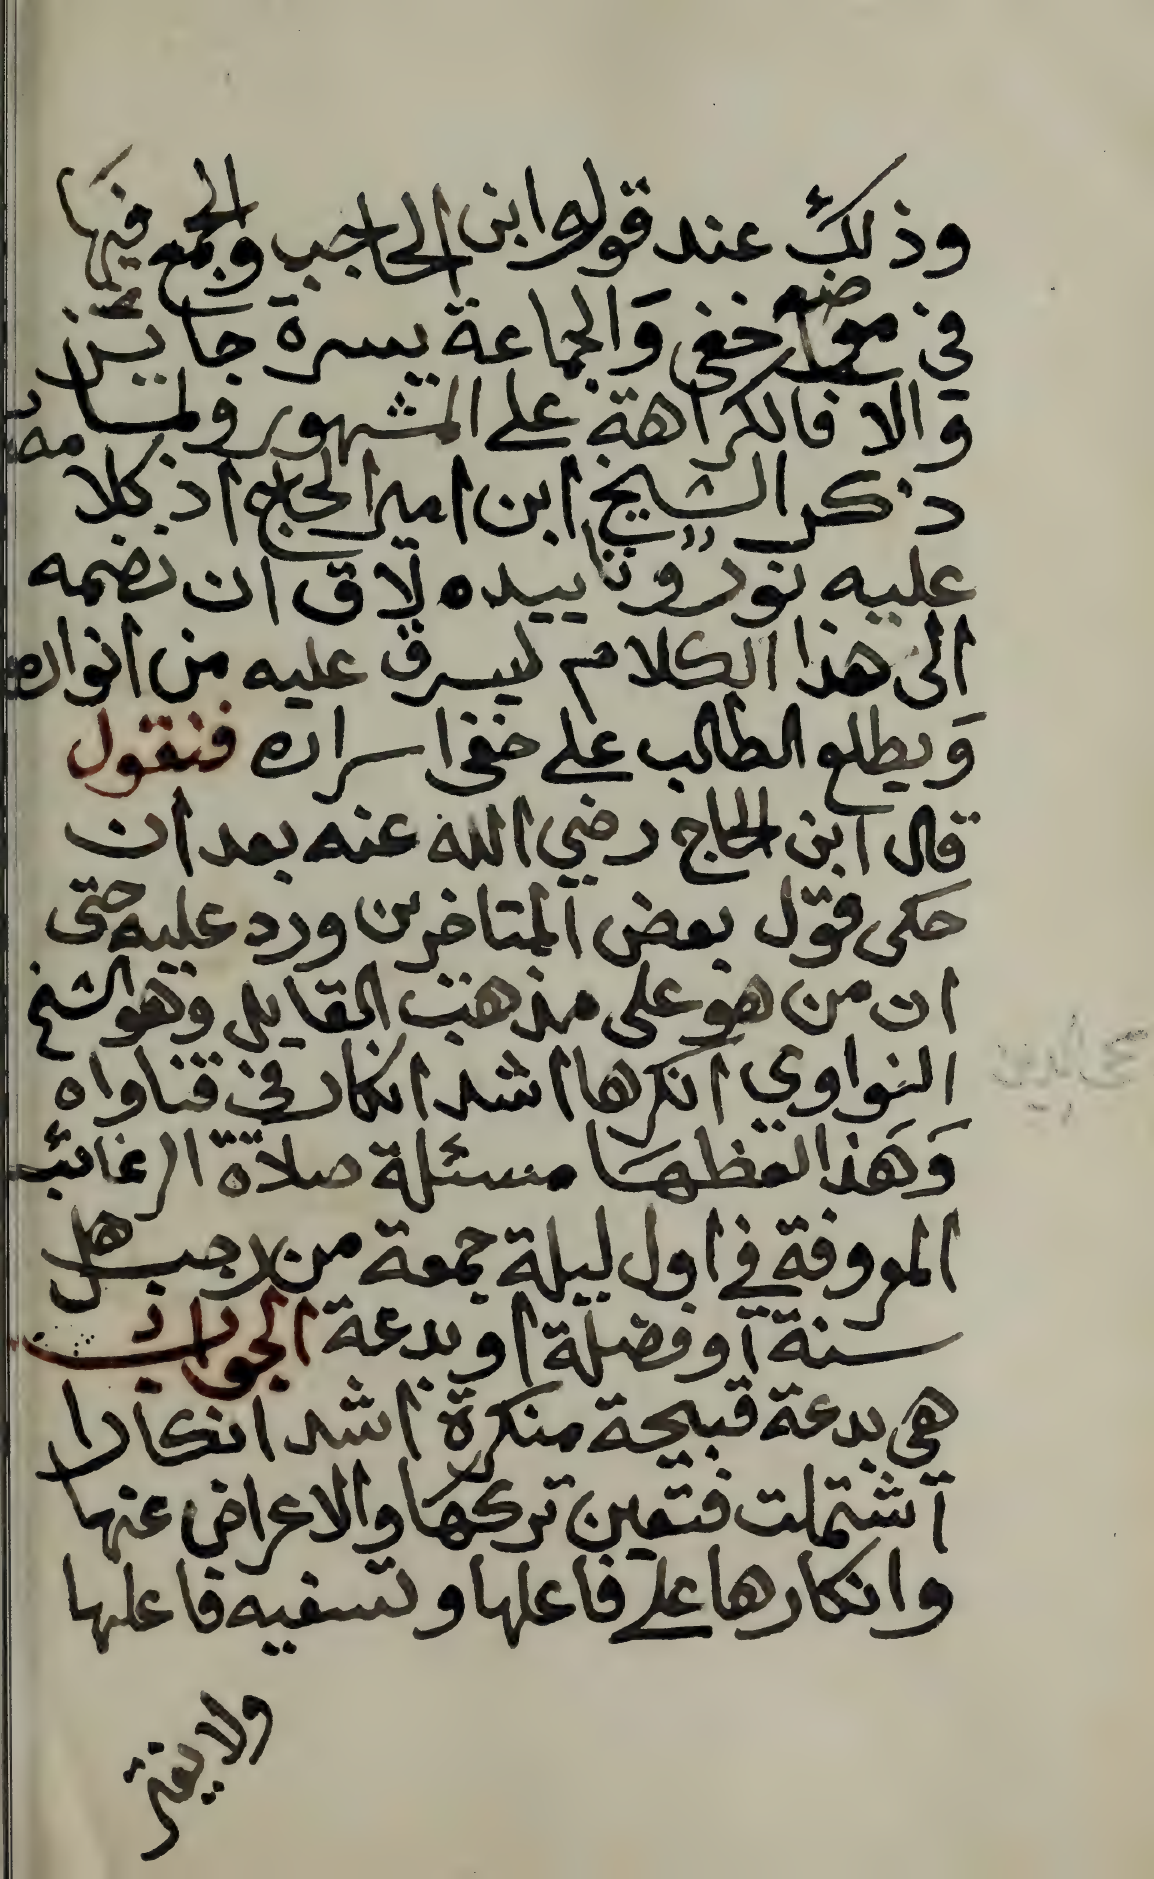 وذلك عند قوله ابن الحاجب والجمع فيها
في موضع خفي والجماعة يسرة جايز
والا فالكراهة على المشهور ولما
ذكر الشيخ ابن امير الحاج اذ كلامه
عليه نور وتاييده لاق ان نضمه
الى هذا الكلام ليسرق عليه من انواره
ويطلع الطالب على خفي اسراره فنقول
قال ابن الحاج رضي الله عنه بعد ان
حكى قول بعض المتاخرين ورد عليه حتى
ان من هو على مذهب القايل وهو الشخ
محي الدين
النواوي انكرها اشد انكار في فتاواه
وهذا لفظها مسئلة صلاة الرغائب
المعروفة في اول ليلة جمعة من رجب هل
سنة او فضيلة او بدعة الجواب
هي بدعة قبيحة منكرة اشد انكارا
اشتملت فتعين تركها والاعراض عنها
وانكارها على فاعلها وتسفيه فاعلها
ولا يغتر